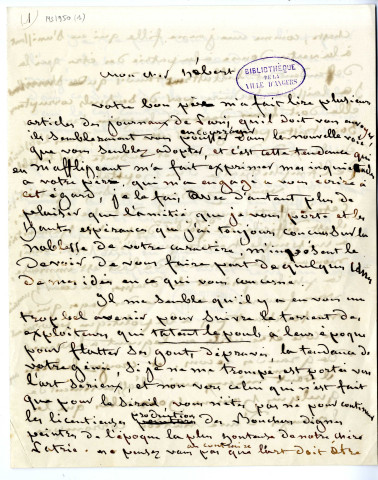 (1) MS 1950 (1)
BIBLIOTHÈQUE DE LA VILLE D'ANGERS
Mon cher Hébert
Votre bon père m'a fait lire plusieurs
articles des journaux de Paris, qu'il doit vous
ils sembleraient vous encourager dans la nouvelle voie
que vous semblez adopter, et c'est cette tendance qui
en m'affligeant m'a fait exprimer mes inquiétudes
à votre père, qui m'a engagé à vous écrire à
cet égard, je le fais avec d'autant plus de
plaisir que l'amitié que je vous porte et les
hautes espérances que j'ai toujours conçues sur la
noblesse de votre caractère, m'imposent le
devoir de vous faire part de quelques unes
de mes idées en ce qui vous concerne.
Il me semble qu'il y a en vous un
trop bel avenir pour suivre le torrent des
exploiteurs qui tatent le pouls à leur époque
pour flatter ses gouts dépravés, la tendance de
votre génie, si je ne me trompe est portée vers
l'art sérieux, et non vers celui qui n'est fait
que pour le Sérail vous n'êtes pas né pour continuer
les licentieuses production des Boucher dignes
peintres de l'époque la plus honteuse de notre chère
Patrie. ne pensez vous pas au contraire que l'art doit être